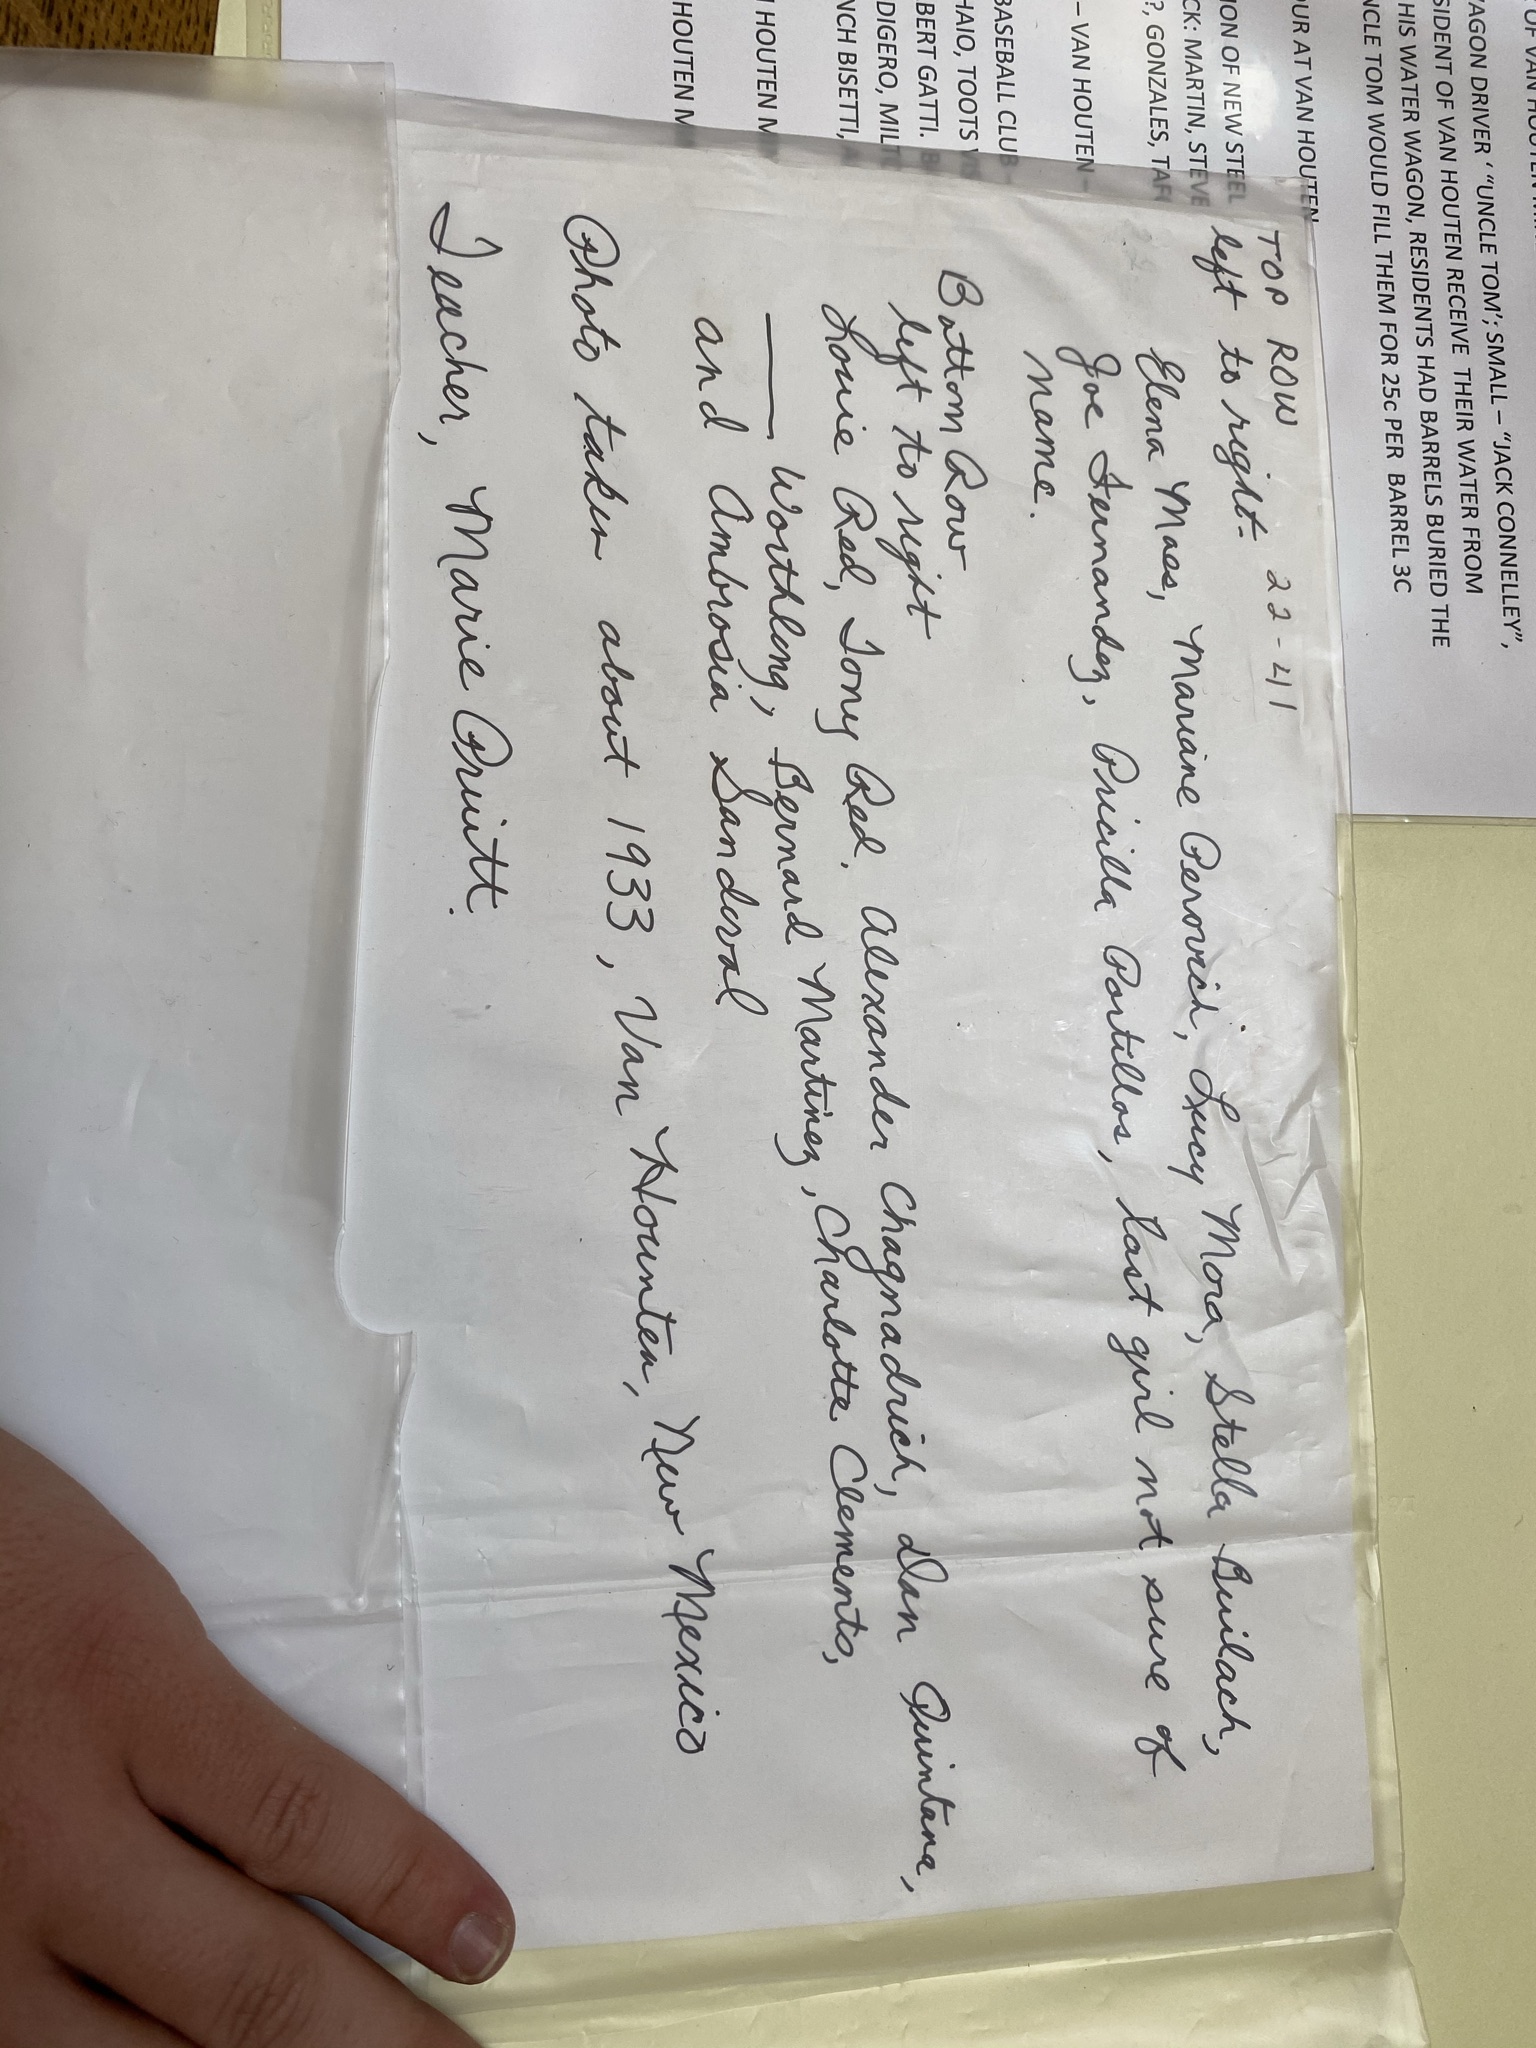 OF VAN HOUTEN
WAGON DRIVER ‘ “UNCLE TOM’; SMALL – “JACK CONNELLEY”,
SIDENT OF VAN HOUTEN RECEIVE THEIR WATER FROM
HIS WATER WAGON, RESIDENTS HAD BARRELS BURIED THE
NCLE TOM WOULD FILL THEM FOR 25c PER BARREL 3C
OUR AT VAN HOUTEN
ION OF NEW STEEL
CK: MARTIN, STEVE
?, GONZALES, TAF
– VAN HOUTEN –
BASEBALL CLUB –
HAIO, TOOTS
BERT GATTI.
DIGERO, MILT
NCH BISETTI,
HOUTEN M
HOUTEN M
TOP ROW 22-41
left to right-
Elena Maes, Mariane Perovich, Lucy Mora, Stella Builach,
Joe Hernandez, Pricilla Portillos, last girl not sure of
name.
Bottom Row
left to right
Louie Red, Tony Red. Alexander Chagnadrich, Dan Quintana,
___ Worthling, Bernard Martinez, Charlotte Clements,
and Ambrosia Sandoval
Photo taken about 1933, Van Hounten, New Mexico
Teacher, Marie Pruitt.